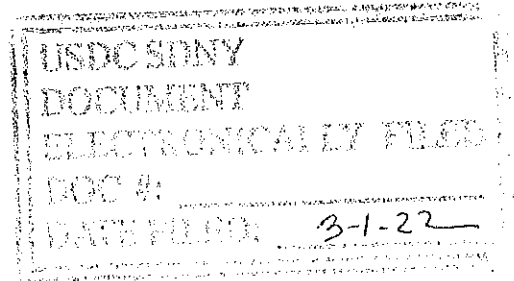 USDC SDNY
DOCUMENT
ELECTRONICALLY FILED
DOC #:
DATE FILED: 3-1-22